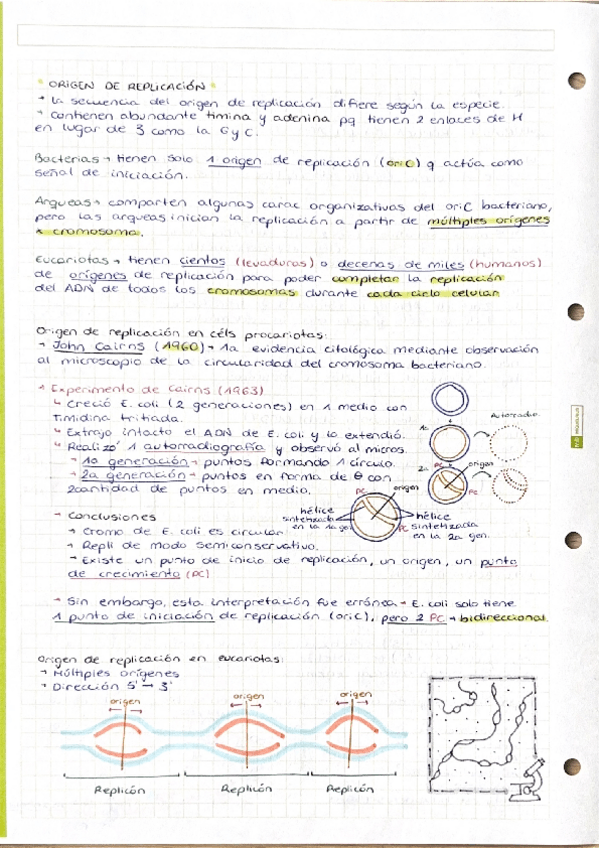 ORIGEN DE REPLICACIÓN
→ La secuencia del origen de replicación difiere según la especie.
→ Contienen abundante timina y adenina pq tienen 2 enlaces de H
en lugar de 3 como la G y C.
Bacterias → tienen solo 1 origen de replicación (oriC) q actúa como
señal de iniciación.
Arqueas → comparten algunas carac organizativas del oriC bacteriano,
pero las arqueas inician la replicación a partir de múltiples orígenes
x cromosoma.
Eucariotas → tienen cientos (levaduras) o decenas de miles (humanos)
de orígenes de replicación para poder completar la replicación
del ADN de todos los cromosomas durante cada ciclo celular
Origen de replicación en céls procariotas:
→ John Cairns (1960) → 1a evidencia citológica mediante observación
al microscopio de la circularidad del cromosoma bacteriano.
Experimento de Cairns (1963)
↳ Creció E. coli (2 generaciones) en 1 medio con
Timidina tritiada.
↳ Extrajo intacto el ADN de E. coli y lo extendió.
↳ Realizó 1 autorradiografía y observó al micros.
→ 1a generación → puntos formando 1 círculo.
→ 2a generación → puntos en forma de θ con
2cantidad de puntos en medio.
Autorradio.
1a
2a
PC
origen
PC
origen
PC
hélice
sintetizada
en la 1a gen
hélice
sintetizada
en la 2a gen.
→ Conclusiones
→ Cromo de E. coli es circular
→ Repli de modo semiconservativo.
→ Existe un punto de inicio de replicación, un origen, un punto
de crecimiento (PC)
→ Sin embargo, esta interpretación fue errónea → E. coli solo tiene
1 punto de iniciación de replicación (oriC), pero 2 PC → bidireccional.
Origen de replicación en eucariotas:
→ Múltiples orígenes
→ Dirección 5' → 3'
origen origen origen
Replicón Replicón Replicón